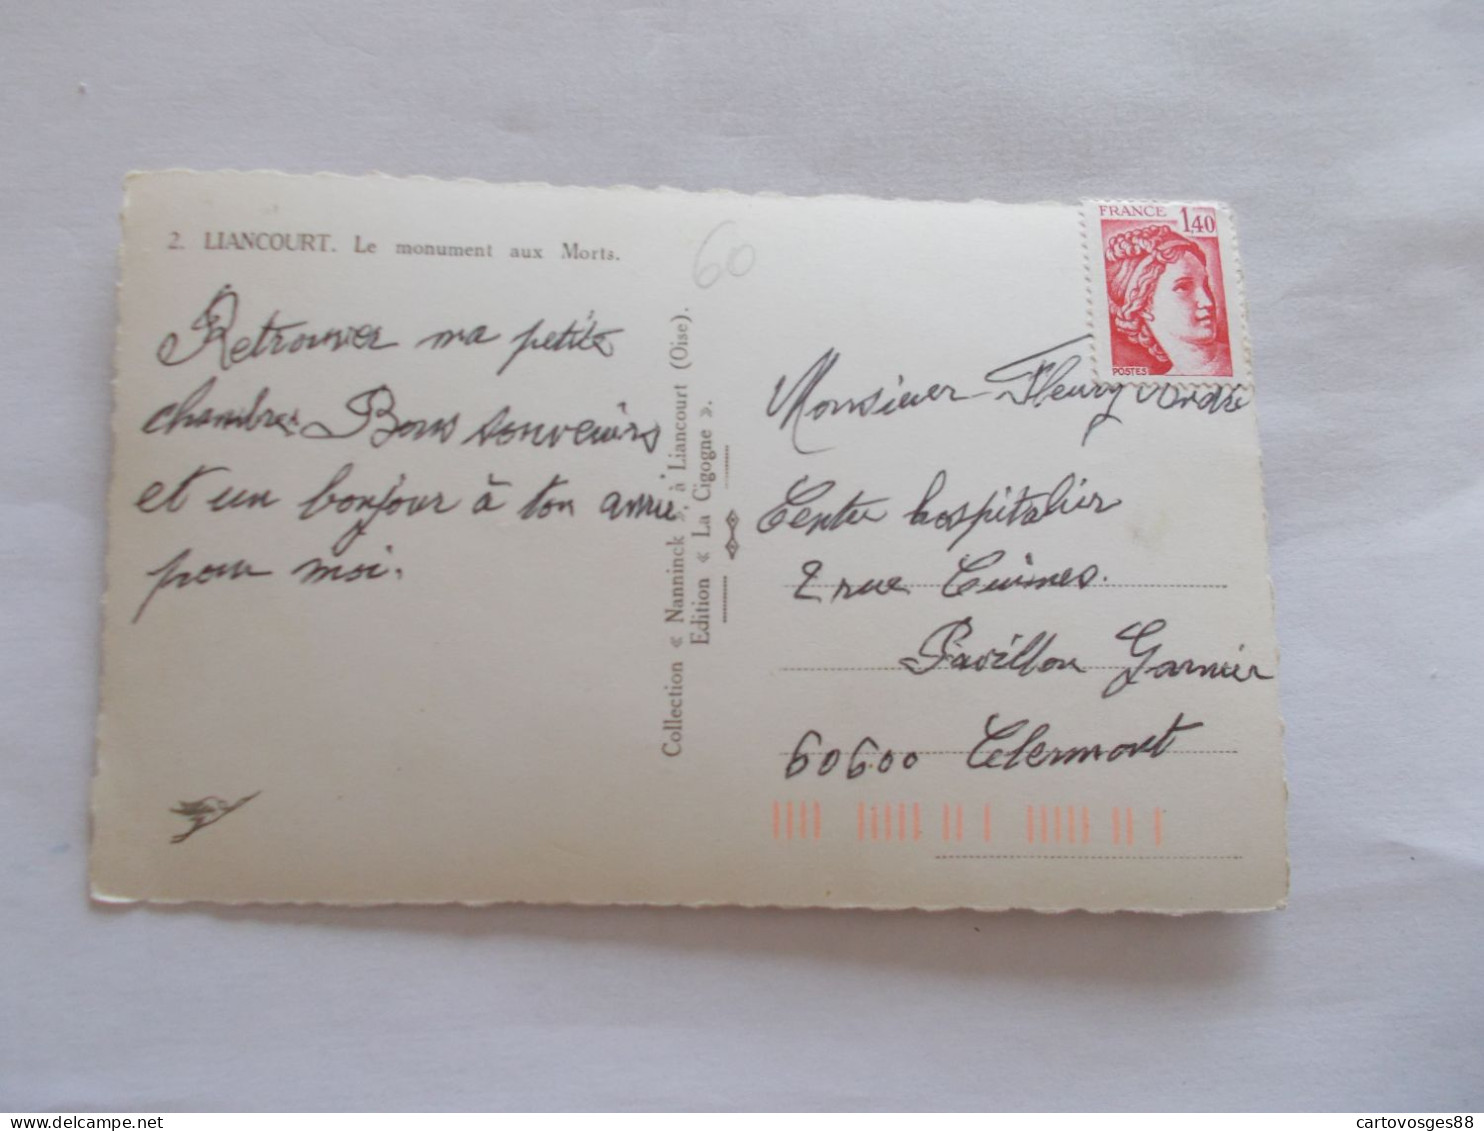 2. LIANCOURT. Le monument aux Morts.
60
Retrouver ma petite
chambre Bons souvenirs
et un bonjour à ton amie
pour moi.
Collection « Nanninck », à Liancourt (Oise).
Edition « La Cigogne ».
FRANCE 1,40
POSTES
Monsieur Fleury André
Centre hospitalier
2 rue
Pavillon Garnier
60600 Clermont
cartovosges88